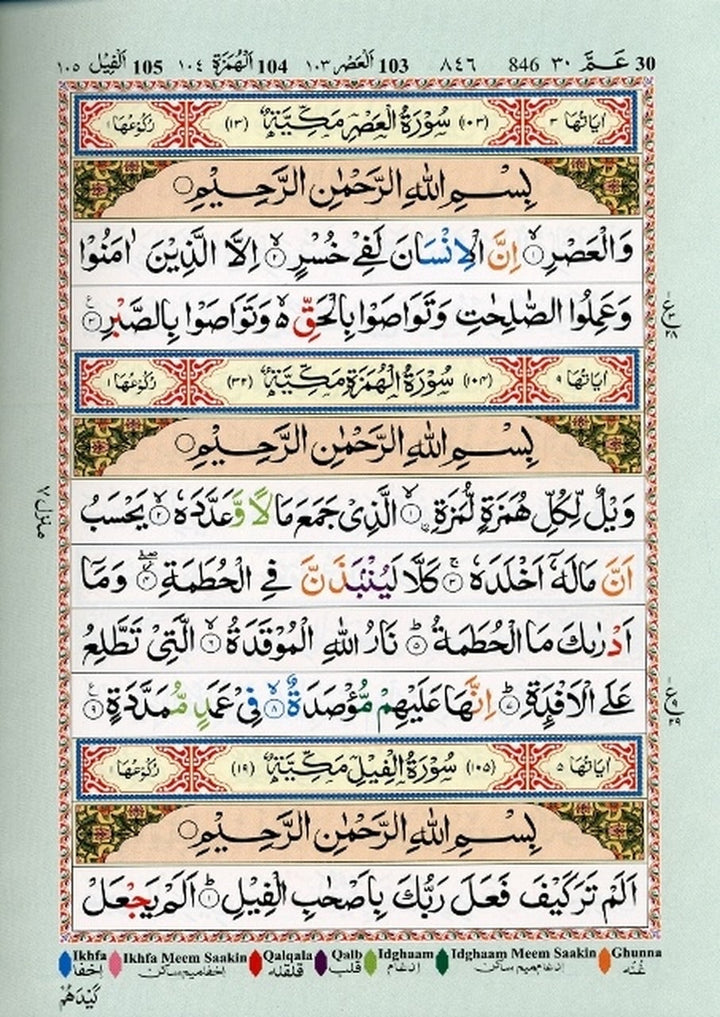 30 عَمَّ ٣٠ 846 ٨٤٦ 103 اَلْعَصْر ١٠٣ 104 اَلْهُمَزَة ١٠٤ 105 اَلْفِيل ١٠٥
اٰيَاتُهَا ٣ (١٠٣) سُوْرَةُ الْعَصْرِ مَكِّيَّةٌ (١٣) رُكُوْعُهَا ١
بِسْمِ اللّٰهِ الرَّحْمٰنِ الرَّحِيْمِ
وَالْعَصْرِ ۙ‏﴿۱﴾ اِنَّ الْاِنْسَانَ لَفِىْ خُسْرٍ ۙ‏﴿۲﴾ اِلَّا الَّذِيْنَ اٰمَنُوْا
وَعَمِلُوا الصّٰلِحٰتِ وَتَوَاصَوْا بِالْحَقِّ ۙ وَتَوَاصَوْا بِالصَّبْرِ ﴿۳﴾
ع
٢٨
اٰيَاتُهَا ٩ (١٠٤) سُوْرَةُ الْهُمَزَةِ مَكِّيَّةٌ (٣٢) رُكُوْعُهَا ١
بِسْمِ اللّٰهِ الرَّحْمٰنِ الرَّحِيْمِ
وَيْلٌ لِّكُلِّ هُمَزَةٍ لُّمَزَةِ ۙ‏﴿۱﴾ اۨلَّذِىْ جَمَعَ مَالًا وَّعَدَّدَهٗ ۙ‏﴿۲﴾ يَحْسَبُ
منزل ٧
اَنَّ مَالَهٗۤ اَخْلَدَهٗ ۚ‏﴿۳﴾ كَلَّا لَيُنْۢبَذَنَّ فِى الْحُطَمَةِ ۖ‏﴿۴﴾ وَمَاۤ
اَدْرٰىكَ مَا الْحُطَمَةُ ؕ‏﴿۵﴾ نَارُ اللّٰهِ الْمُوْقَدَةُ ۙ‏﴿۶﴾ الَّتِىْ تَطَّلِعُ
عَلَى الْاَفْـِٕدَةِ ؕ‏﴿۷﴾ اِنَّهَا عَلَيْهِمْ مُّؤْصَدَةٌ ۙ‏﴿۸﴾ فِىْ عَمَدٍ مُّمَدَّدَةٍ ﴿۹﴾
ع
٩
٢٩
اٰيَاتُهَا ٥ (١٠٥) سُوْرَةُ الْفِيْلِ مَكِّيَّةٌ (١٩) رُكُوْعُهَا ١
بِسْمِ اللّٰهِ الرَّحْمٰنِ الرَّحِيْمِ
اَلَمْ تَرَ كَيْفَ فَعَلَ رَبُّكَ بِاَصْحٰبِ الْفِيْلِ ؕ‏﴿۱﴾ اَلَمْ يَجْعَلْ
Ikhfa Ikhfa Meem Saakin Qalqala Qalb Idghaam Idghaam Meem Saakin Ghunna
اِخفا اِخفامیم ساکن قلقلہ قلب اِدغام اِدغام میم ساکن غُنّہ
كَيْدَهُمْ